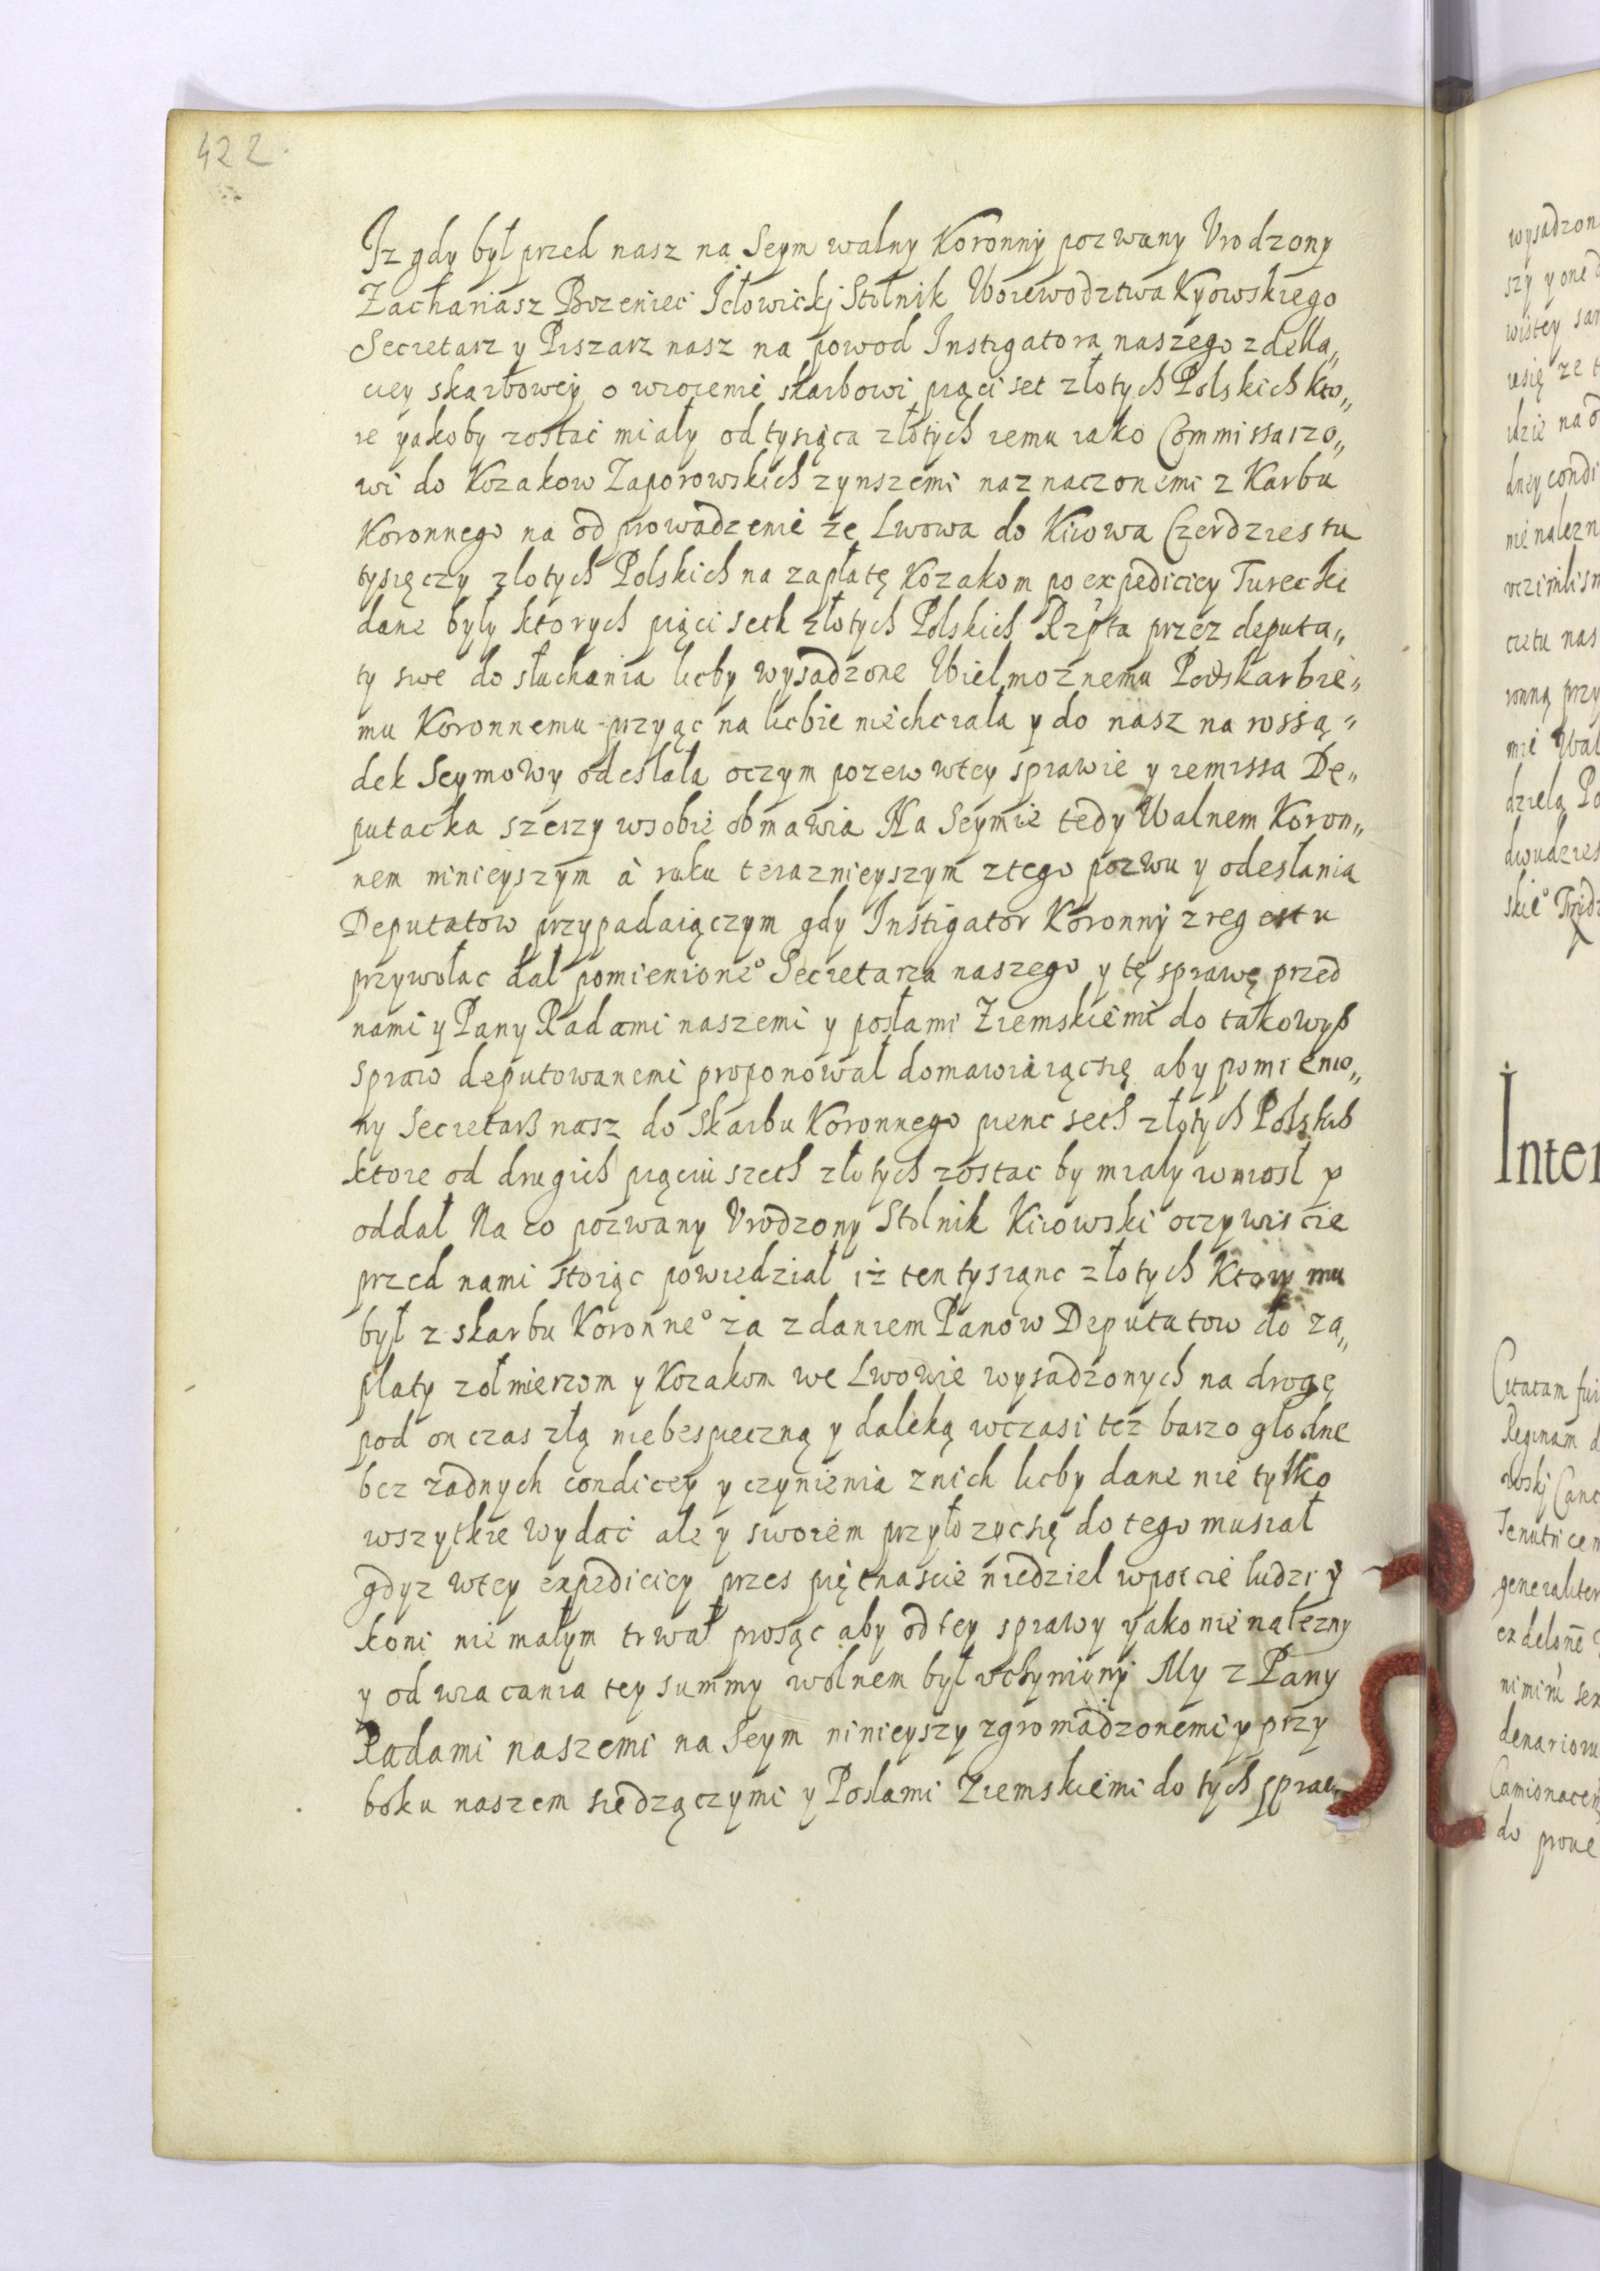 422.
Iz gdy był przed nasz na Seym walny Koronny pozwany Vrodzony
Zachariasz Bozeniec Jełowickj Stolnik Woiewodztwa Kyowskiego
Secretarz y Piszarz nasz na powod Instigatora naszego z della„
ciey skarbowey o wrocenie skarbowi piąci set złotych Polskich kto„
re yakoby zostać miały od tysiąca złotych iemu iako Commissarzo„
wi do Kozakow Zaporowskich z ynszemi naznaczonemi z Karbu
Koronnego na odprowadzenie ze Lwowa do Kiowa Czerdziestu
tysięczy złotych Polskich na zapłatę Kozakom po expediciey Turecki
dane były ktorych piąci seth złotych Polskich Rzpta przez deputa„
ty swe do słuchania liczby wysadzone Wielmoznemu Podskarbie„
mu Koronnemu przyąc na liczbie niechciala y do nasz na rossą„
dek Seymowy odesłała oczym pozew wtey sprawie y remissa De„
putacka szerzy wsobie obmawia Na Seymie tedy Walnem Koron„
nem ninieyszym à roku teraznieyszym ztego pozwu y odesłania
Deputatow przypadaiączym gdy Instigator Koronny z regestu
przywołac dał pomienione° Secretarza naszego y tę sprawę przed
nami y Pany Radami naszemi y posłami Ziemskiemi do takowyß
spraw deputowanemi proponował domawiaiącsię aby pomienio„
ny Secretarß nasz do skarbu Koronnego pienc sech złotych Polskiß
ktore od drugich piąciu szech złotych zostac by miały wniosl y
oddał Na co pozwany Vrodzony Stolnik Kiowski oczywiscie
przed nami stoiąc powiedział iż ten tysiąnc złotych ktory mu
był z skarbu Koronne° za zdaniem Panow Deputatow do za„
płaty zołnierzom y Kozakom we Lwowie wysadzonych na drogę
pod on czas złą niebespieczną y daleką wczasi tez barzo głodne
bez żadnych condiciey y czynienia znich liczby dane nie tylko
wszytkie wydać ale y swoiem przyłozycsię do tego musiał
gdyz wtey expediciey przes piętnascie niedziel wpoccie ludzi y
koni nie małym trwał prosząc aby od tey sprawy yako nie nałezny
y od wracania tey summy wolnem był vchyniony My z Pany
Radami naszemi na Seym ninieyszy zgromadzonemi y przy
boku naszem siedzączymi y Posłami Ziemskiemi do tych spraw
wysadzon
szy y one
wistey
się ze
dzie na
dney condi
nie nalezn
vczinilism
cretu nas
ronną przy
nie Wal
dzielą Po
dwudzies
skie°
Inter
Citatam
Reginam
Canc
Tenutricem
generaliter
denariorum
do proue